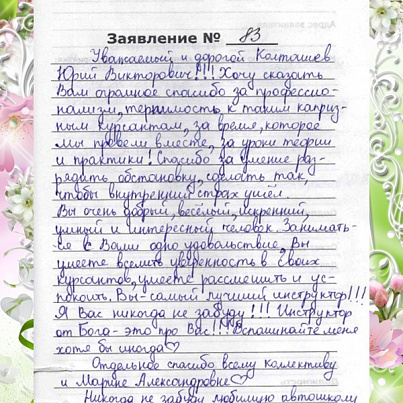 Заявление № 83
Уважаемый и дорогой Колташев
Юрий Викторович!!! Хочу сказать
Вам огромное спасибо за профессио-
нализм, терпимость к таким каприз-
ным курсантам, за время, которое
мы провели вместе, за уроки теории
и практики! Спасибо за умение раз-
рядить обстановку, сделать так,
чтобы внутренний страх ушёл.
Вы очень добрый, весёлый, искренний,
умный и интересный человек. Занимать-
ся с Вами одно удовольствие, Вы
умеете вселить уверенность в своих
курсантов, умеете рассмешить и ус-
покоить. Вы - самый лучший инструктор!!!
Я Вас никогда не забуду!!! Инструктор
от Бога - это про Вас!!! Вспоминайте меня
хотя бы иногда♡
Отдельное спасибо всему коллективу
и Марине Александровне♡
Никогда не забуду любимую автошколу